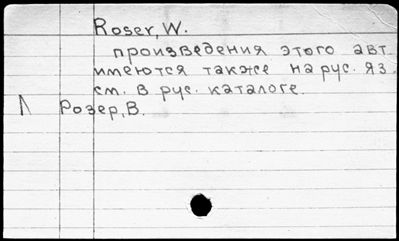 Roser, W.
произведения этого авт.
имеются также на рус. яз.
см. в рус. каталоге.
Розер, В.